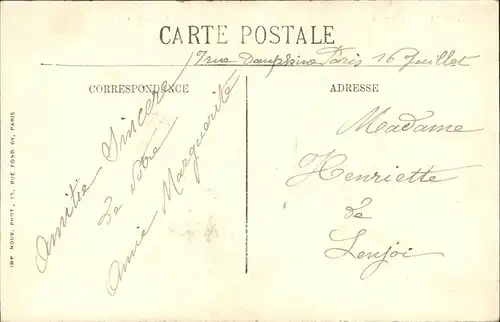 CARTE POSTALE
7 rue Dauphine Paris 16 Juillet
CORRESPONDANCE
Amitié Sincère
De Votre
Amie Marguerite
ADRESSE
Madame
Henriette
de
Lenjoi
IMP. NOUV. PHOT., 15, RUE FOND.-RE, PARIS